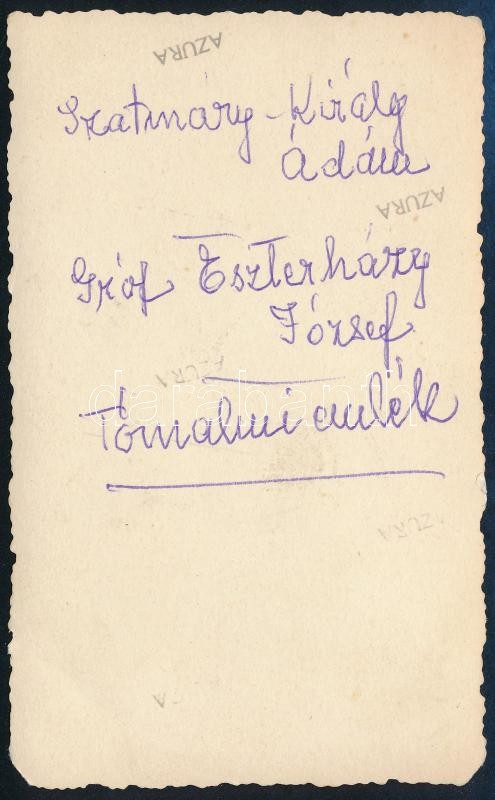 AZURA
Szatmáry-Király
Ádám
AZURA
Gróf Eszterházy
József
AZURA
darabanth
Tornalmi emlék
AZURA